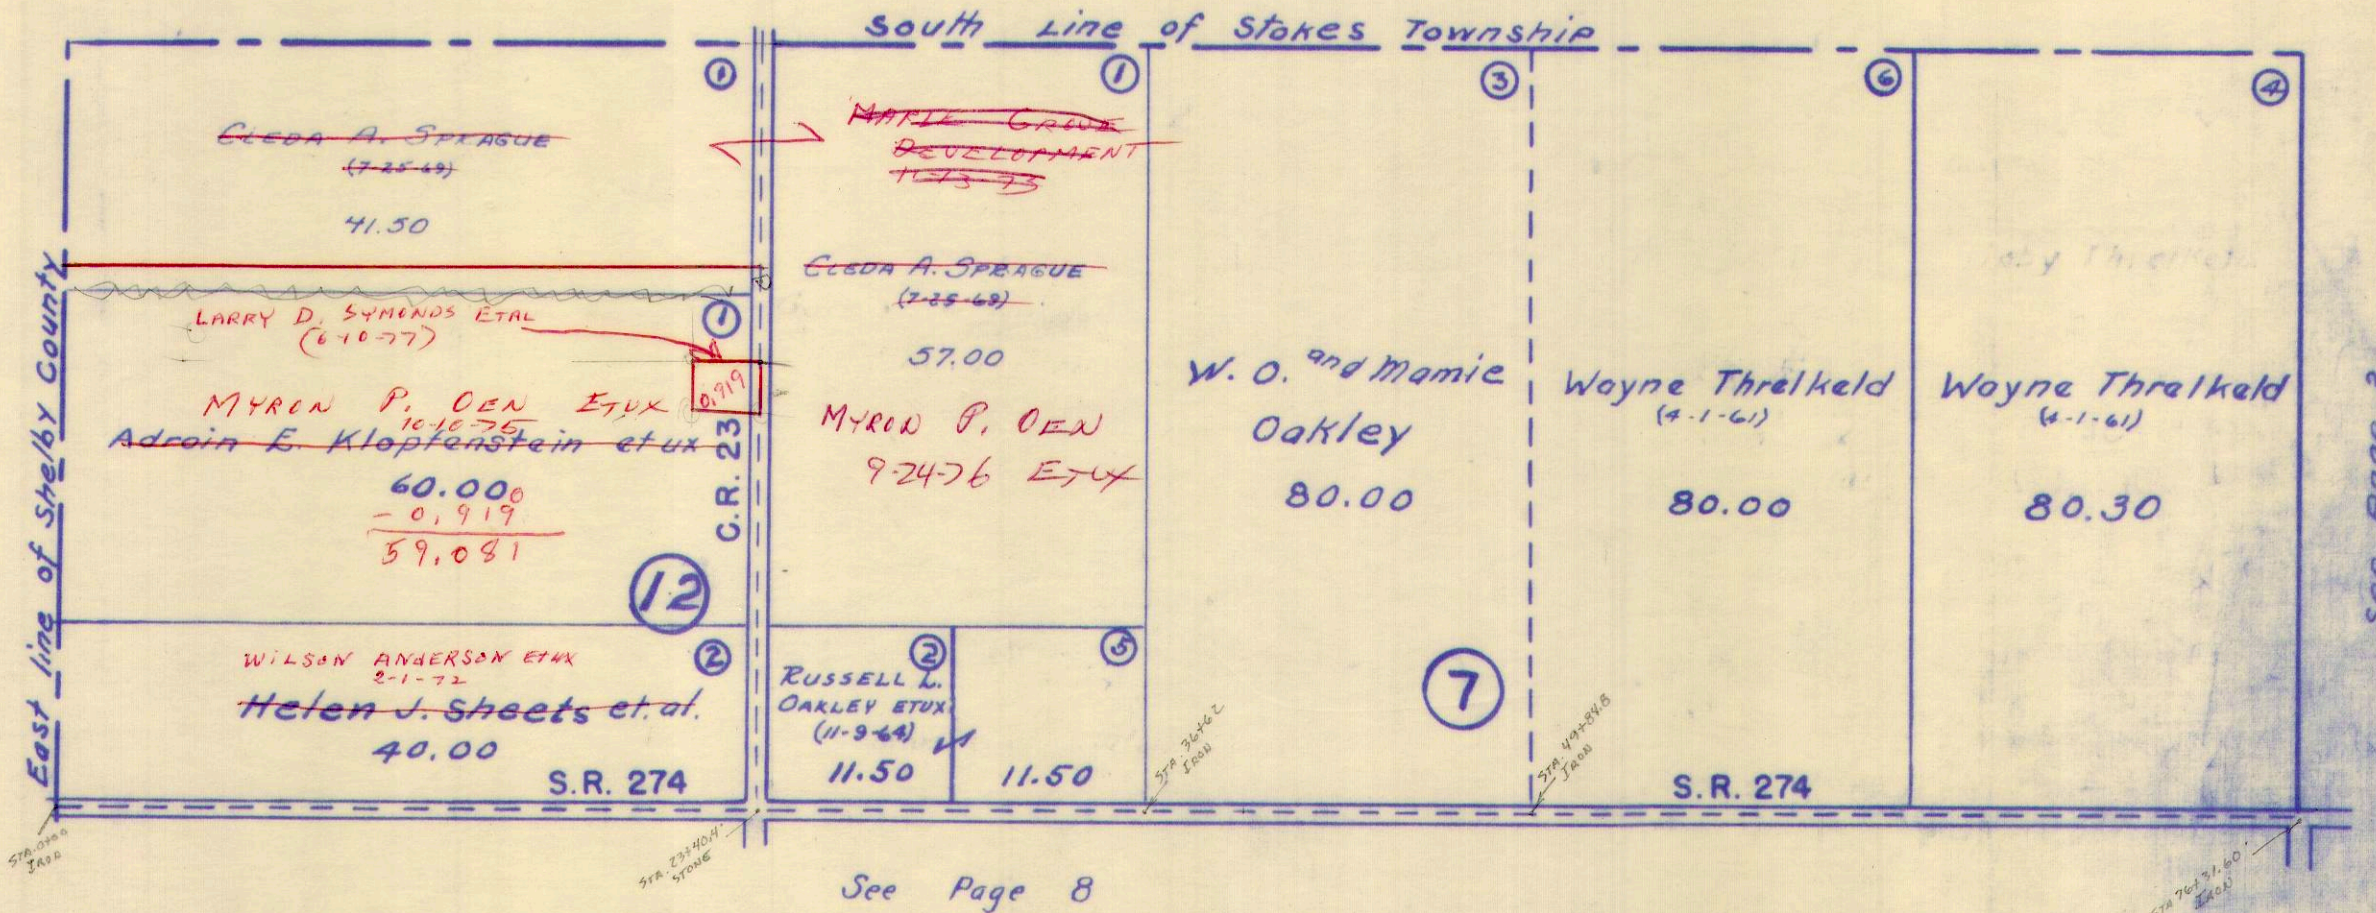 South Line of Stokes Township
East line of Shelby County
1
CLEDA A. SPRAGUE
(7-25-69)
41.50
LARRY D. SYMONDS ETAL
(6-10-77)
1
0.919
MYRON P. OEN ETUX
10-10-75
Adrain E. Klopfenstein et ux
60.000
- 0.919
59.081
12
C.R. 23
WILSON ANDERSON ETUX
2-1-72
2
Helen J. Sheets et. al.
40.00
S.R. 274
1
MARIE GROVE
DEVELOPMENT
11-13-75
CLEDA A. SPRAGUE
(7-25-69)
57.00
MYRON P. OEN
9-24-76 ETUX
2
RUSSELL L.
OAKLEY ETUX
(11-9-64)
11.50
5
11.50
3
W. O. and Mamie
Oakley
80.00
7
6
Wayne Threlkeld
(4-1-61)
80.00
S.R. 274
4
Wayne Threlkeld
(4-1-61)
80.30
STA. 0+00
IRON
STA. 23+40.4
STONE
STA. 36+62
IRON
STA. 49+84.8
IRON
STA 76+31.60
IRON
See Page 8